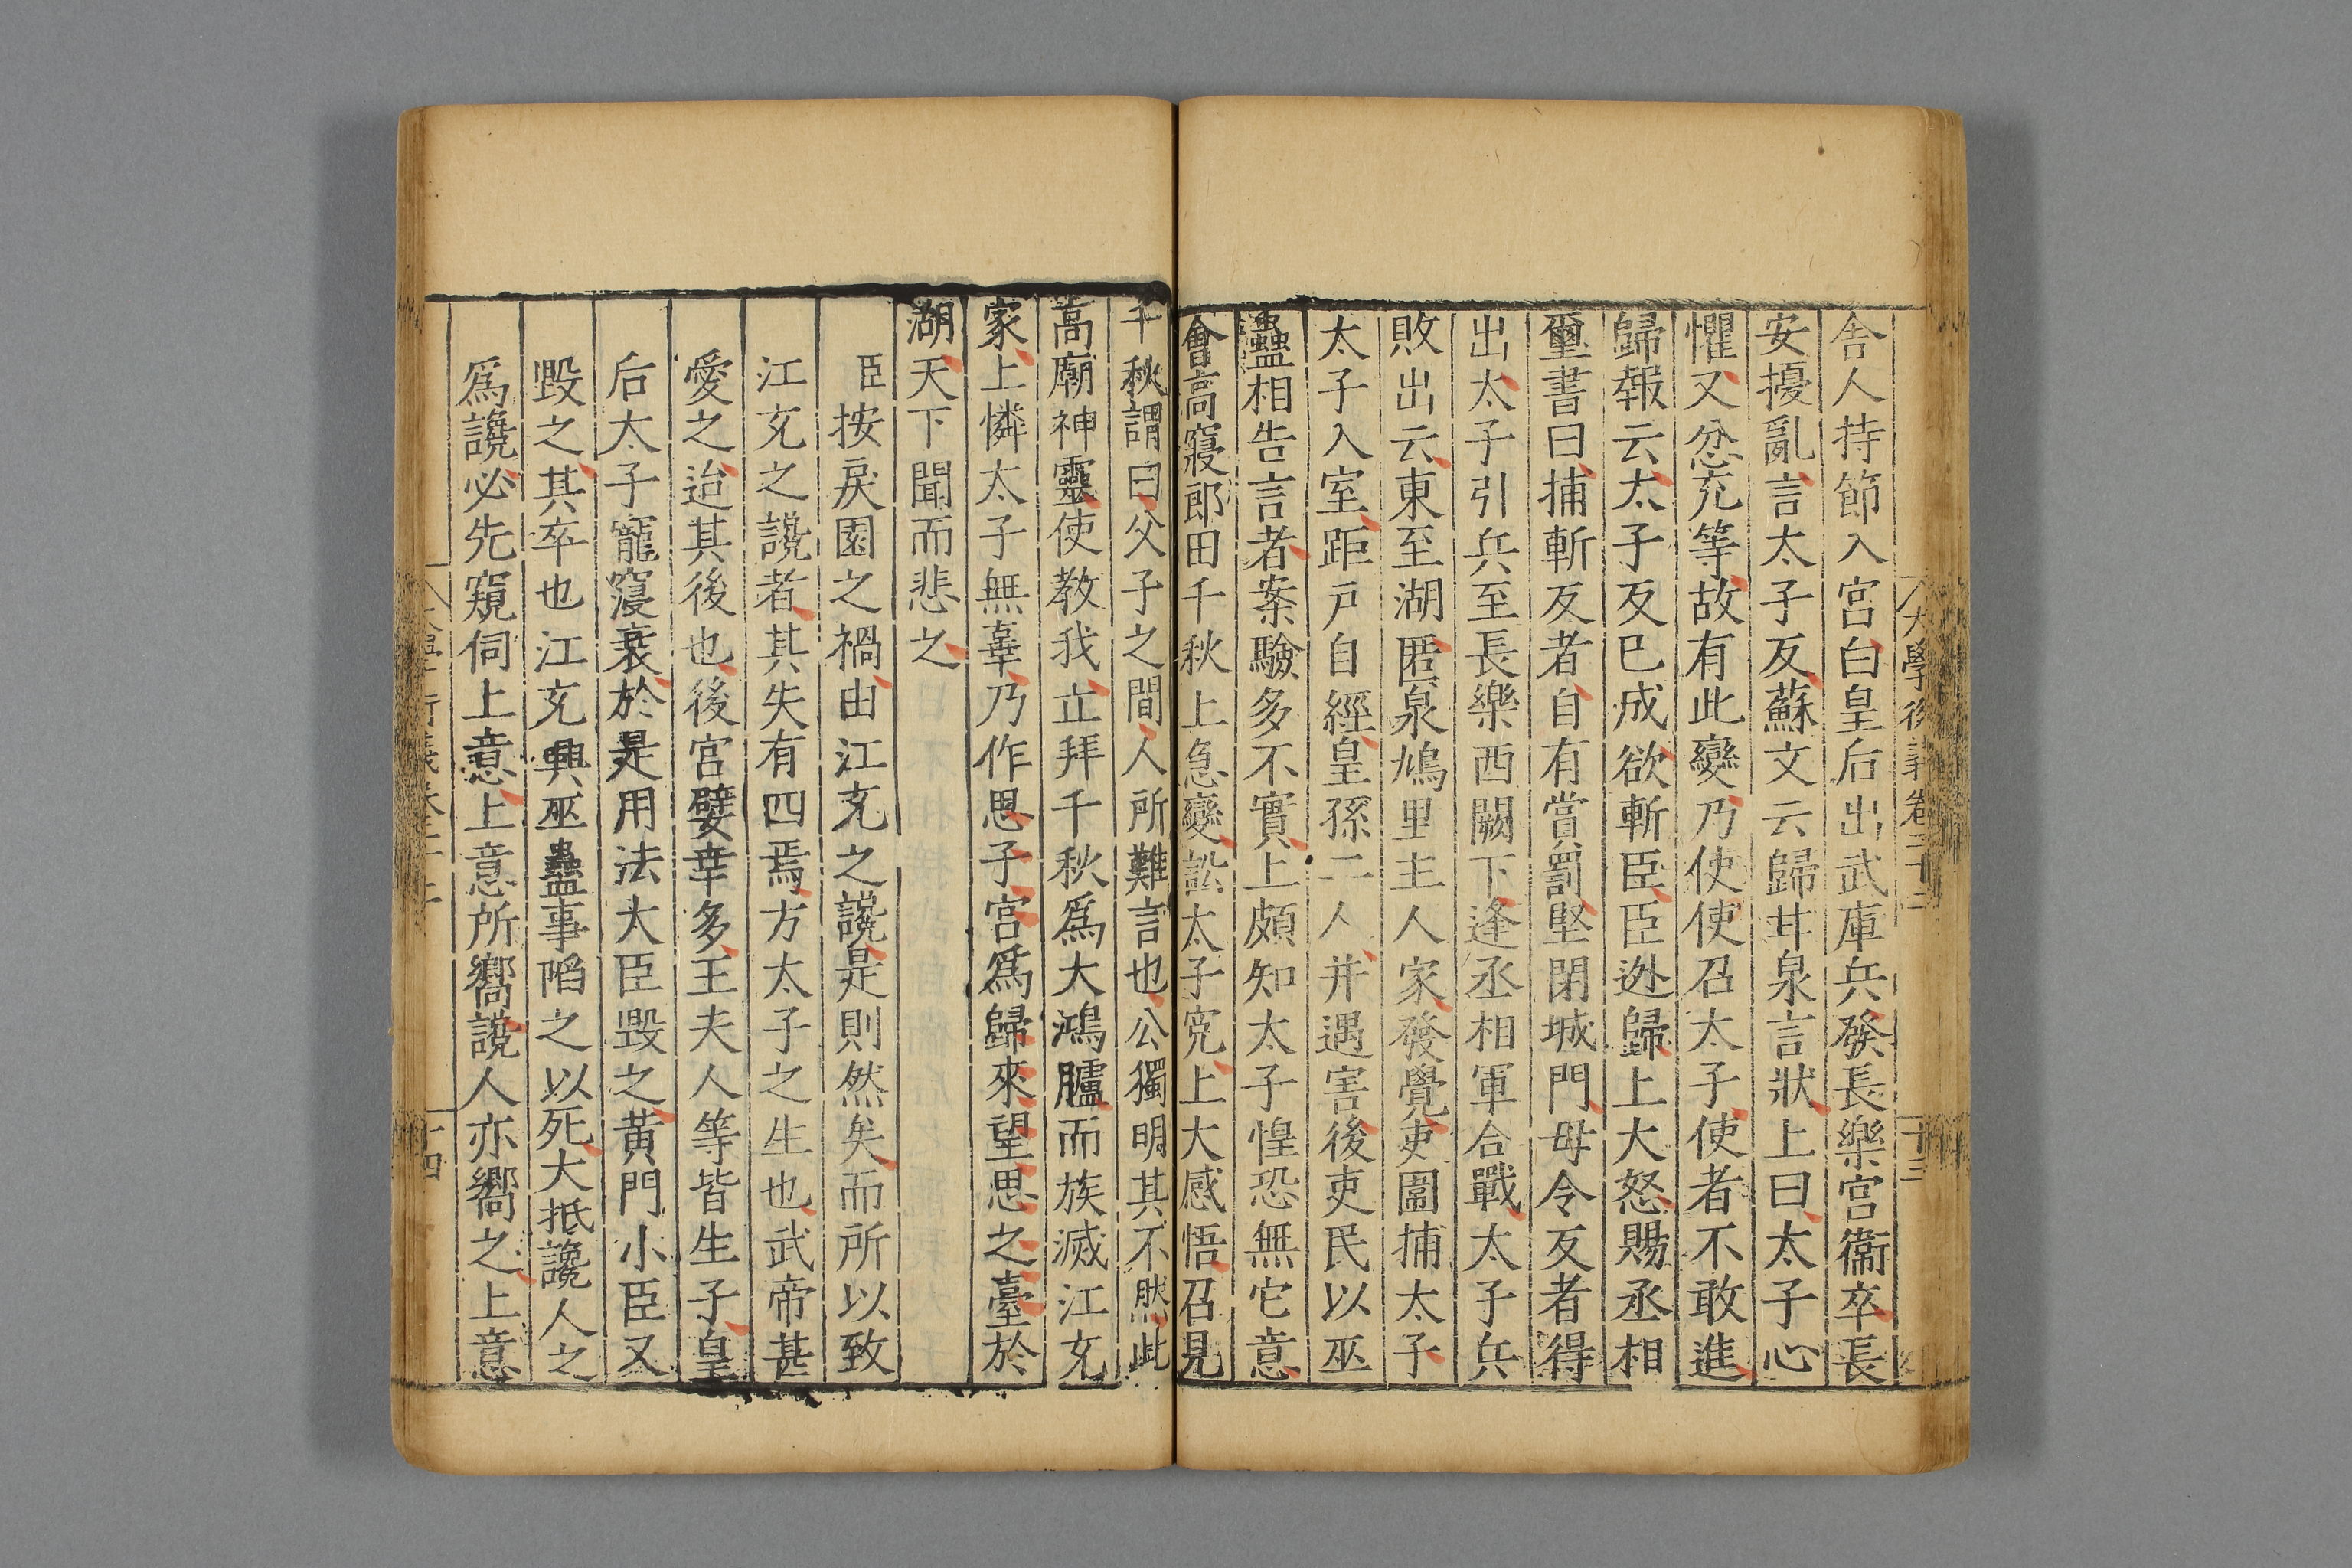 舎人持節入宮白皇后出武庫兵發長樂宮衞卒長
安擾亂言太子反蘇文云歸甘泉言狀上曰太子心
懼又忿充等故有此變乃使使召太子使者不敢進
歸報云太子反已成欲斬臣臣迯歸上大怒賜丞相
璽書曰捕斬反者自有賞罰堅閉城門毋令反者得
出太子引兵至長樂西闕下逢丞相軍合戰太子兵
敗出云東至湖匿泉鳩里主人家發覺吏圍捕太子
太子入室距戸自經皇孫二人并遇害後吏民以巫
蠱相告言者案驗多不實上頗知太子惶恐無它意
會高寢郎田千秋上急變訟太子寃上大感悟召見
千秋謂曰父子之間人所難言也公獨明其不然此
高廟神靈使教我立拜千秋爲大鴻臚而族滅江充
家上憐太子無辜乃作思子宮爲歸來望思之臺於
湖天下聞而悲之
臣按戾園之禍由江充之讒是則然矣而所以致
江充之讒者其失有四焉方太子之生也武帝甚
愛之迨其後也後宮嬖幸多王夫人等皆生子皇
后太子寵寖衰於是用法大臣毀之黃門小臣又
毀之其卒也江充興巫蠱事陷之以死大抵讒人之
爲讒必先窺伺上意上意所嚮讒人亦嚮之上意